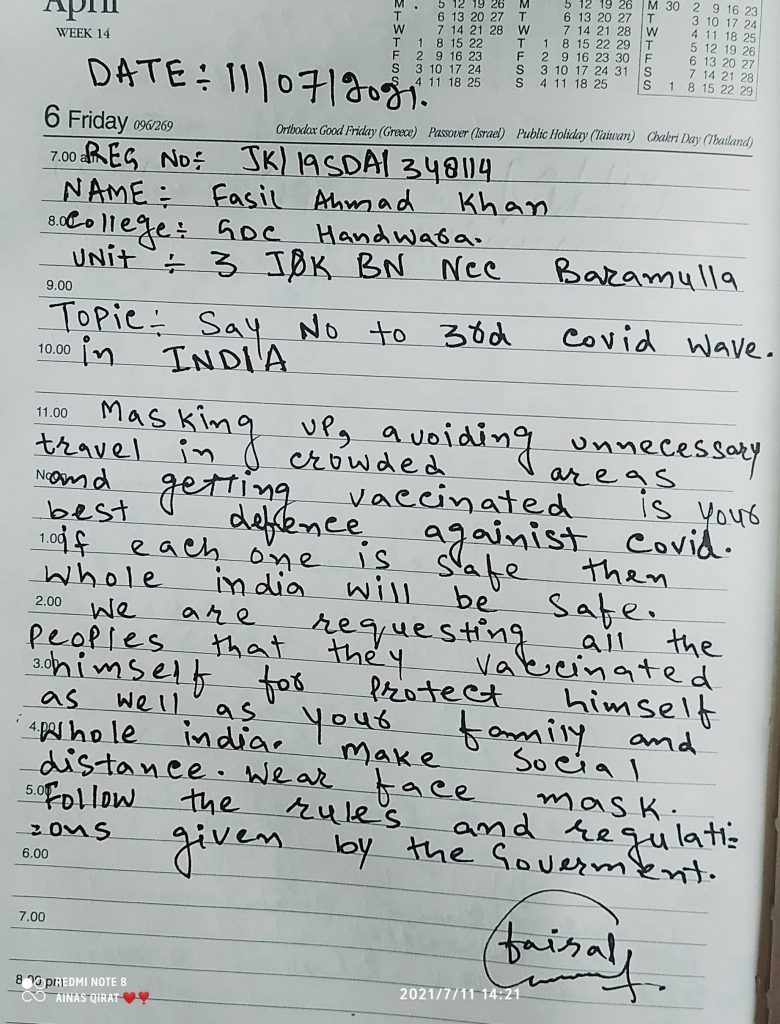 April
WEEK 14
M 5 12 19 26 M 5 12 19 26 M 30 2 9 16 23
T 6 13 20 27 T 6 13 20 27 T 3 10 17 24
W 7 14 21 28 W 7 14 21 28 W 4 11 18 25
T 1 8 15 22 T 1 8 15 22 29 T 5 12 19 26
F 2 9 16 23 F 2 9 16 23 30 F 6 13 20 27
S 3 10 17 24 S 3 10 17 24 31 S 7 14 21 28
S 4 11 18 25 S 4 11 18 25 S 1 8 15 22 29
DATE ÷ 11/07/2021.
6 Friday 096/269 Orthodox Good Friday (Greece) Passover (Israel) Public Holiday (Taiwan) Chakri Day (Thailand)
7.00 REG No ÷ JK/19SDA/348114
NAME ÷ Fasil Ahmad Khan
8.00 College ÷ GDC Handwara.
UNit ÷ 3 J&K BN NCC Baramulla
9.00
Topic ÷ Say No to 3rd covid wave.
10.00 in INDIA
11.00 Masking up, avoiding unnecessary
travel in crowded areas
and getting vaccinated is your
best defence againist covid.
1.00 if each one is safe then
whole india will be safe.
2.00 We are requesting all the
peoples that they vaccinated
3.00 himself for protect himself
as well as your family and
4.00 whole india. make social
distance. wear face mask.
5.00 Follow the rules and regulati=
=ons given by the Goverment.
6.00
7.00
faisal
8.00 pm
REDMI NOTE 8
AINAS QIRAT ❤️❣️
2021/7/11 14:21